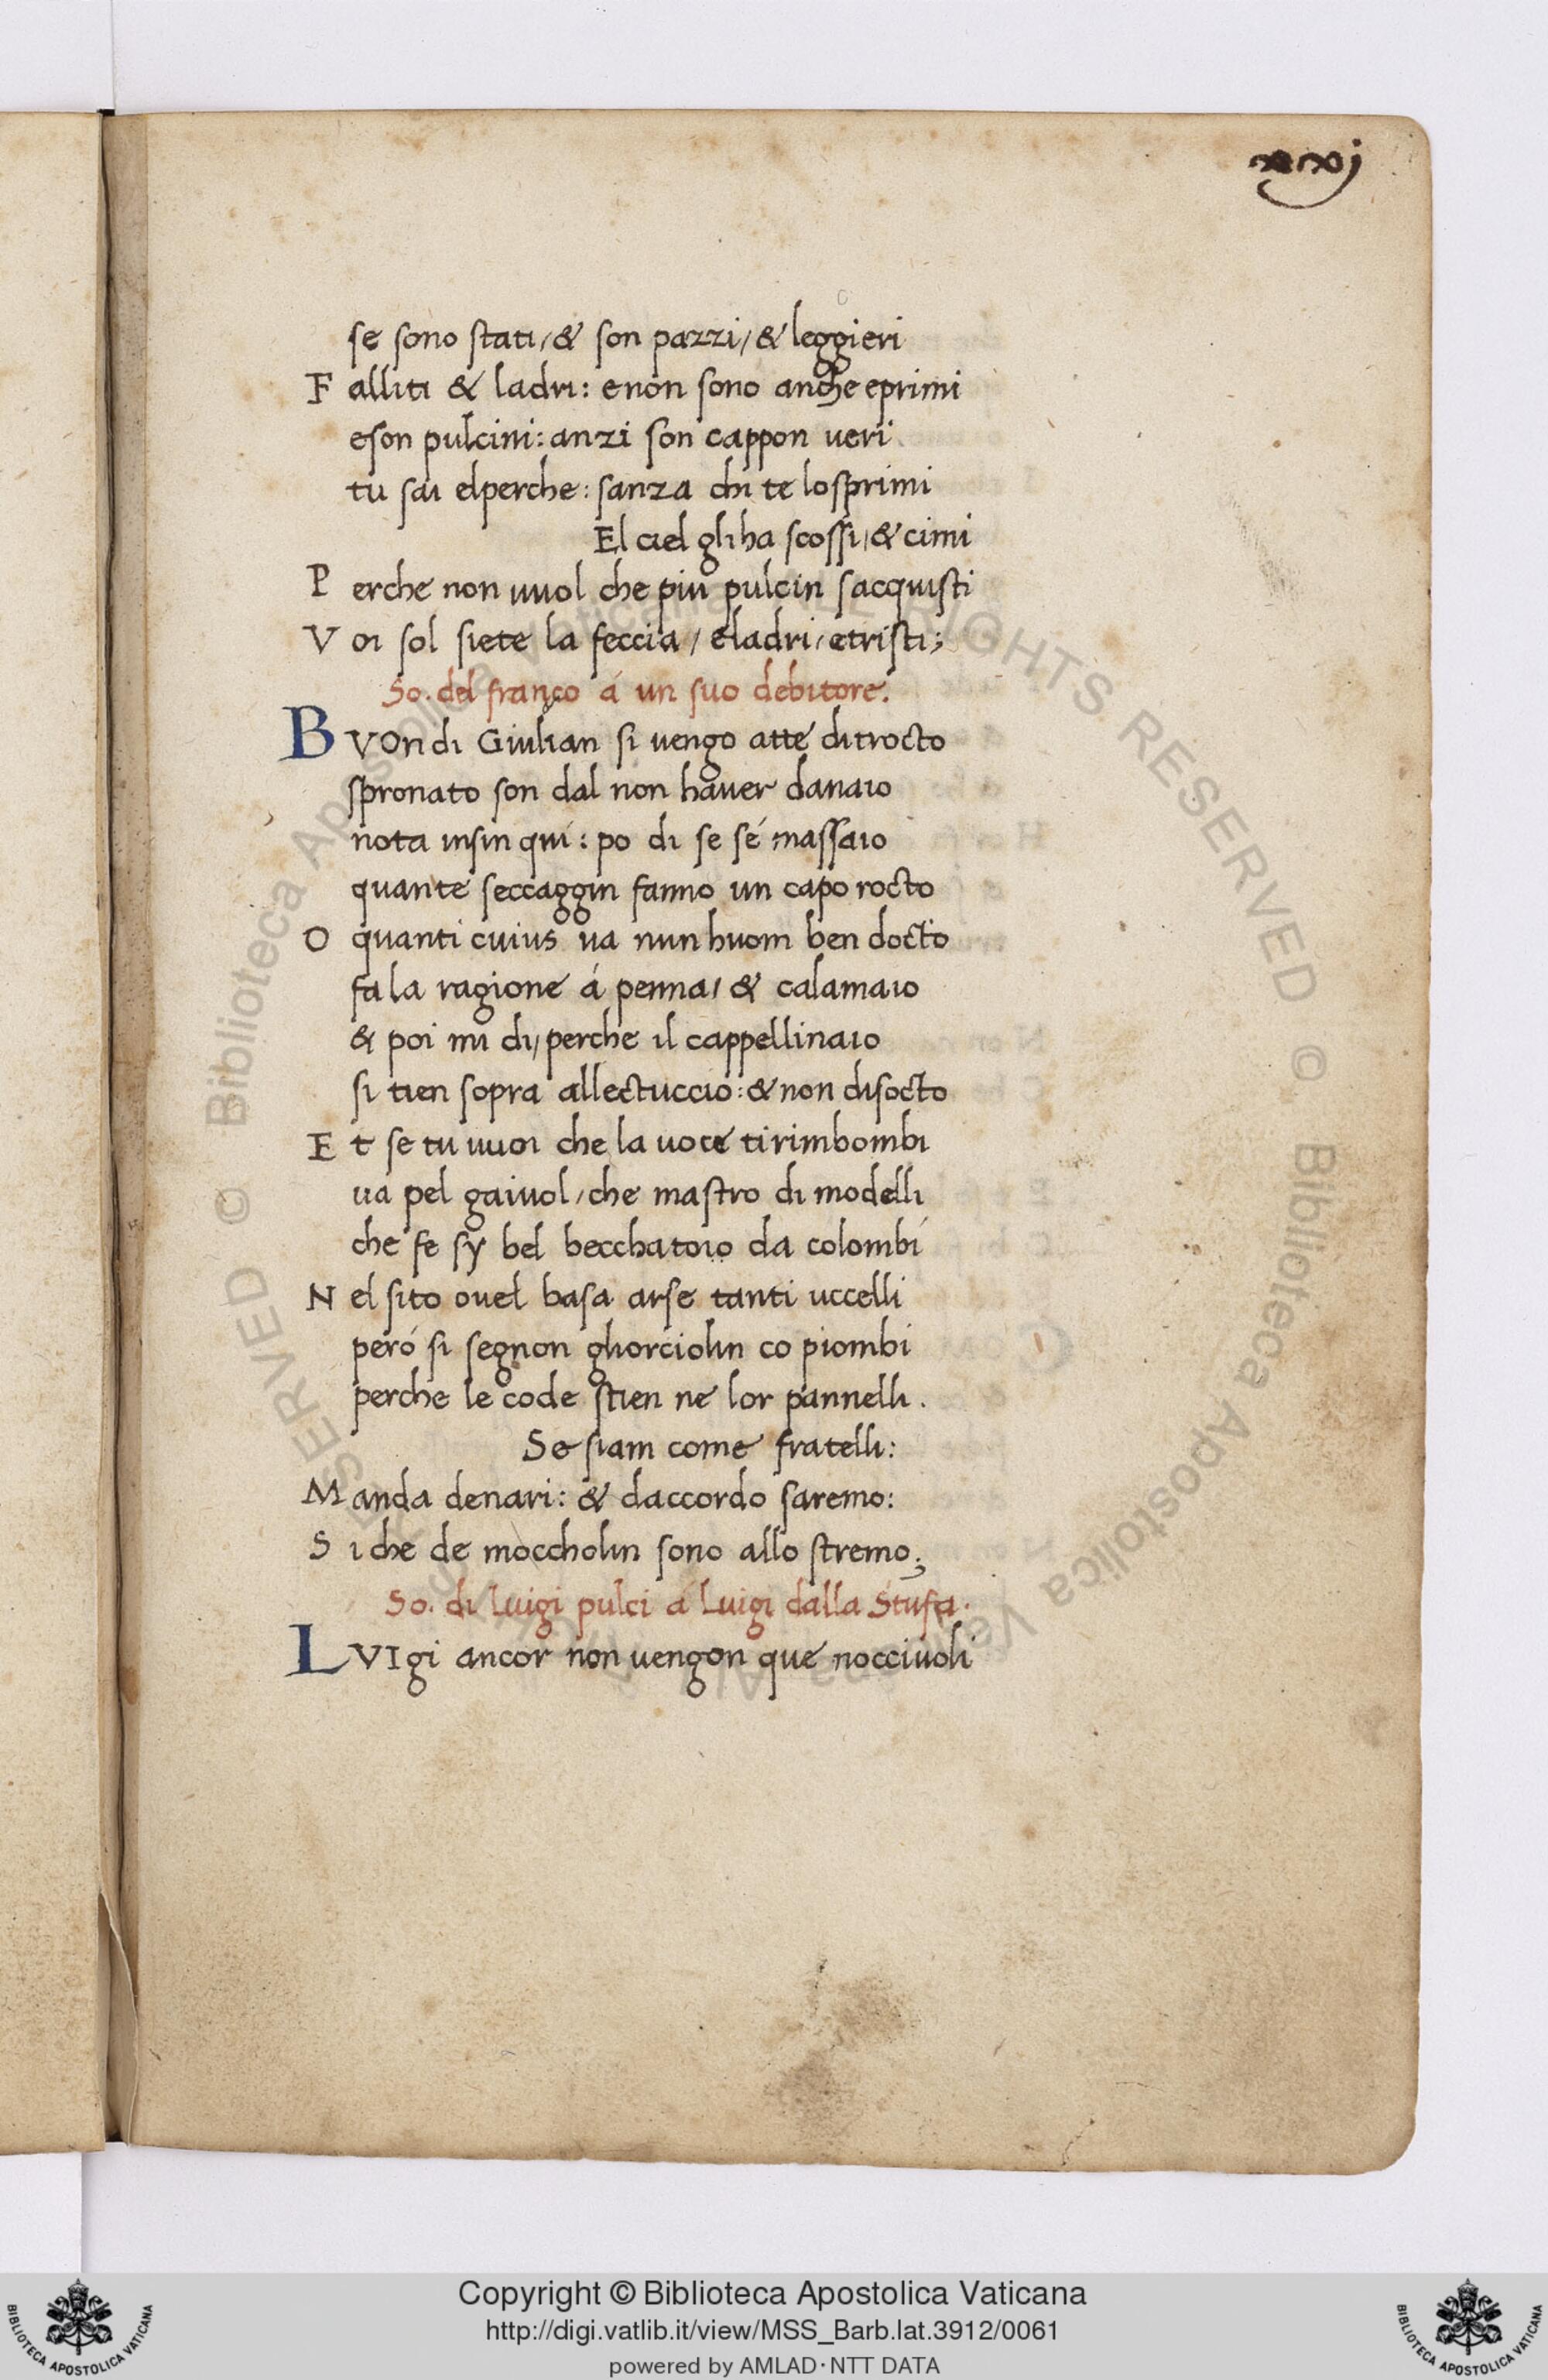 xxxj
se sono stati/& son pazzi/& leggieri
F alliti & ladri: enon sono anche eprimi
eson pulcini: anzi son cappon ueri
tu sai elperche: sanza chi te losprimi
El ciel gliha scossi/& cimi
P erche non uuol che piu pulcin sacquisti
V oi sol siete la feccia/ eladri/etristi;
So. del franco á un suo debitore.
B VOndi Giulian si uengo atte ditrocto
spronato son dal non hauer danaio
nota insin qui: po di se sé massaio
quante seccaggin fanno un capo rocto
O quanti cuius ua nun huom ben docto
fa la ragione á penna/ & calamaio
& poi mi di/perche il cappellinaio
si tien sopra allectuccio: & non disocto
E t se tu uuoi che la uoce tirimbombi
ua pel gaiuol/che mastro di modelli
che fe sy bel becchatoio da colombi
N el sito ouel basa arse tanti uccelli
peró si segnon ghorciolin co piombi
perche le code stien ne lor pannelli.
Se siam come fratelli:
M anda denari: & daccordo saremo:
S i che de moccholin sono allo stremo;
So. di Luigi pulci á Luigi dalla Stufa.
L VIgi ancor non uengon que nocciuoli
© Biblioteca Apostolica Vaticana ALL RIGHTS RESERVED © Biblioteca Apostolica Vaticana ALL RIGHTS RESERVED
Copyright © Biblioteca Apostolica Vaticana
http://digi.vatlib.it/view/MSS_Barb.lat.3912/0061
powered by AMLAD·NTT DATA
BIBLIOTECA APOSTOLICA VATICANA
BIBLIOTECA APOSTOLICA VATICANA